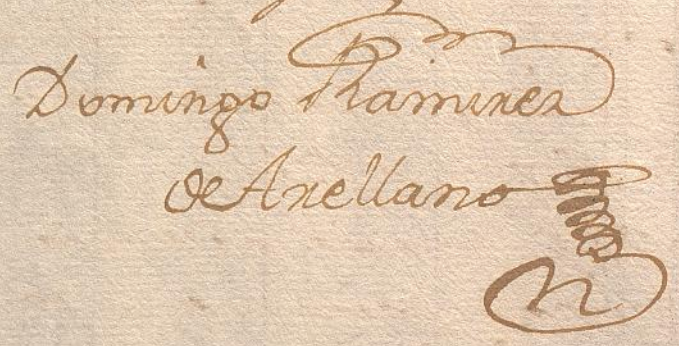 Domingo Ramirez
de Arellano